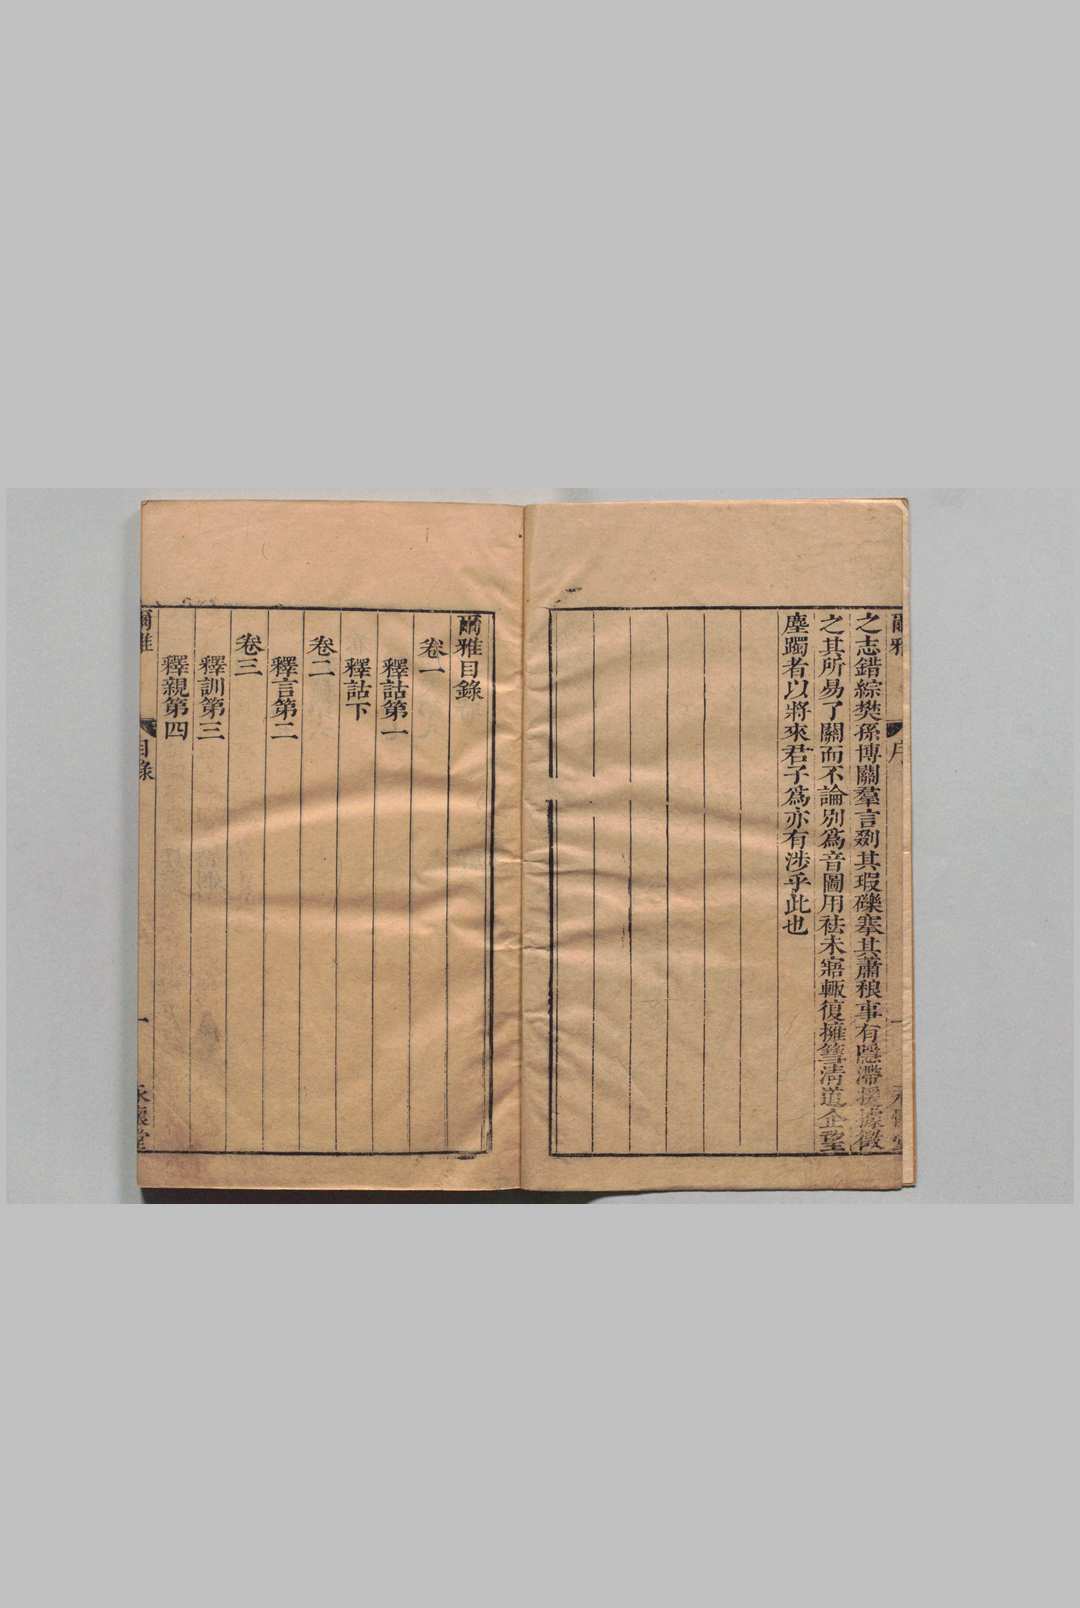 爾雅
序
一
永懷堂
之志錯綜樊孫博關羣言剟其瑕礫搴其蕭稂事有隱滯援據徵
之其所易了闕而不論別為音圖用祛未寤輒復擁篲清道企望
塵躅者以將來君子為亦有涉乎此也
爾雅目錄
卷一
釋詁第一
釋詁下
卷二
釋言第二
卷三
釋訓第三
釋親第四
爾雅
目錄
一
永懷堂